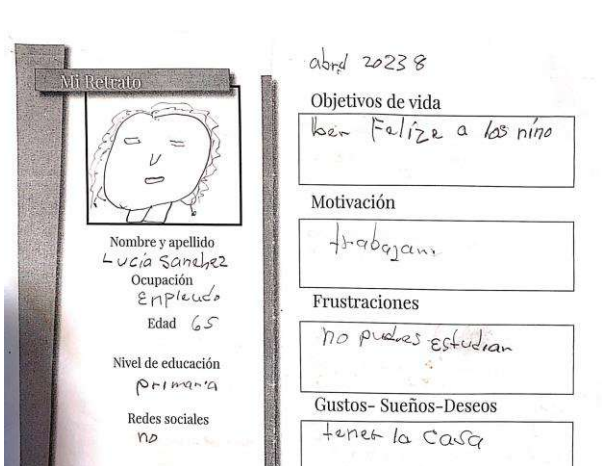 Mi Retrato
Nombre y apellido
Lucia Sanchez
Ocupación
Enpleado
Edad 65
Nivel de educación
primaria
Redes sociales
no
abril 2023 8
Objetivos de vida
ber Felize a los nino
Motivación
trabajan
Frustraciones
no pudes Estudian
Gustos- Sueños-Deseos
tener la casa